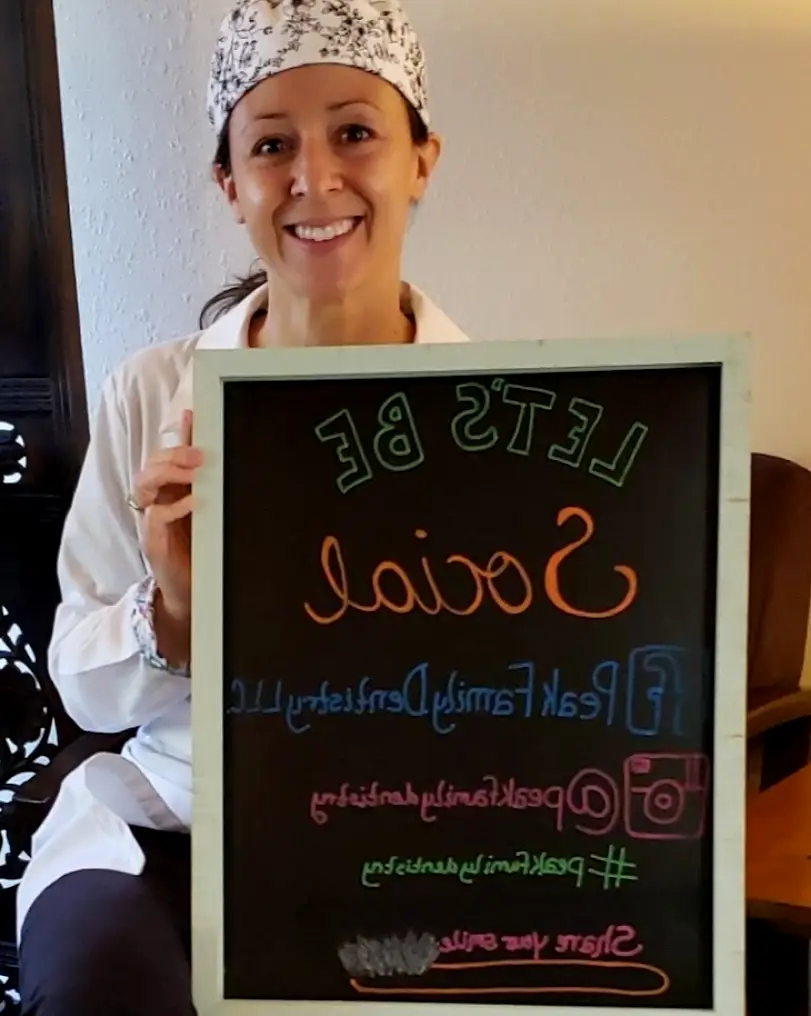 LET'S BE
Social
PeakFamilyDentistryLLC
@peakfamilydentistry
#peakfamilydentistry
Share your smile